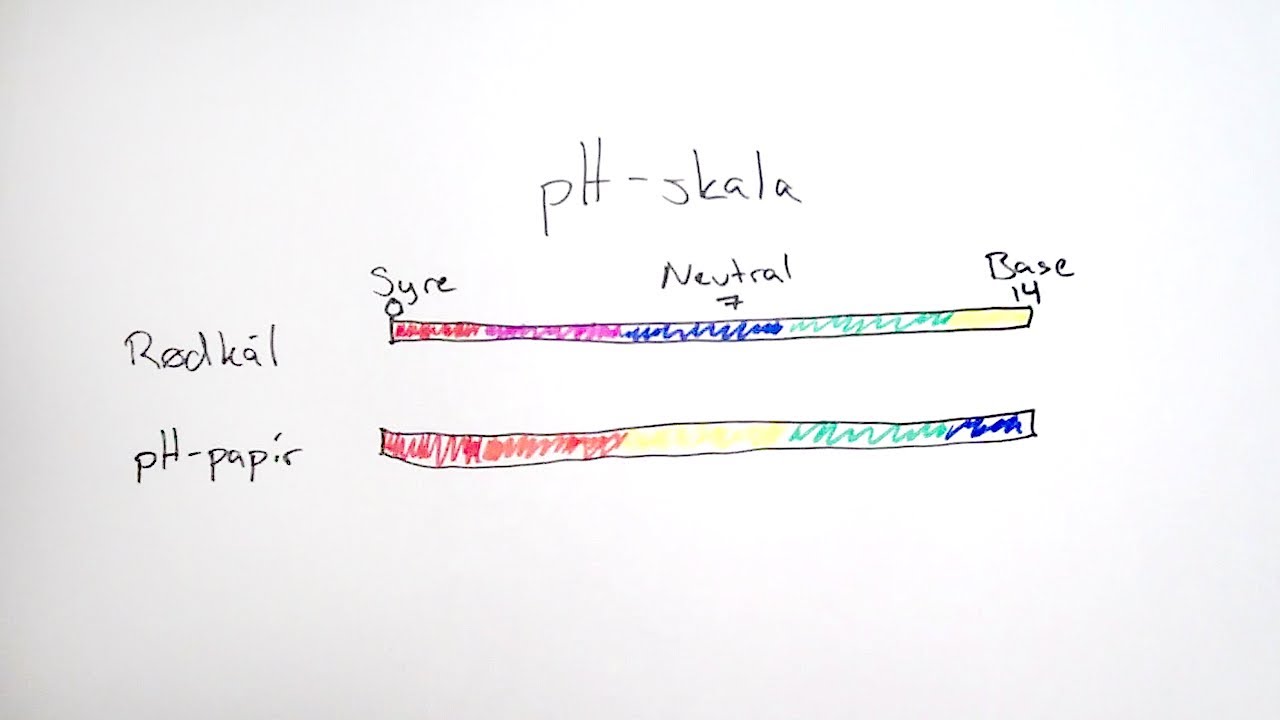 pH-skala
Syre Neutral Base
0 7 14
Rødkål
pH-papír